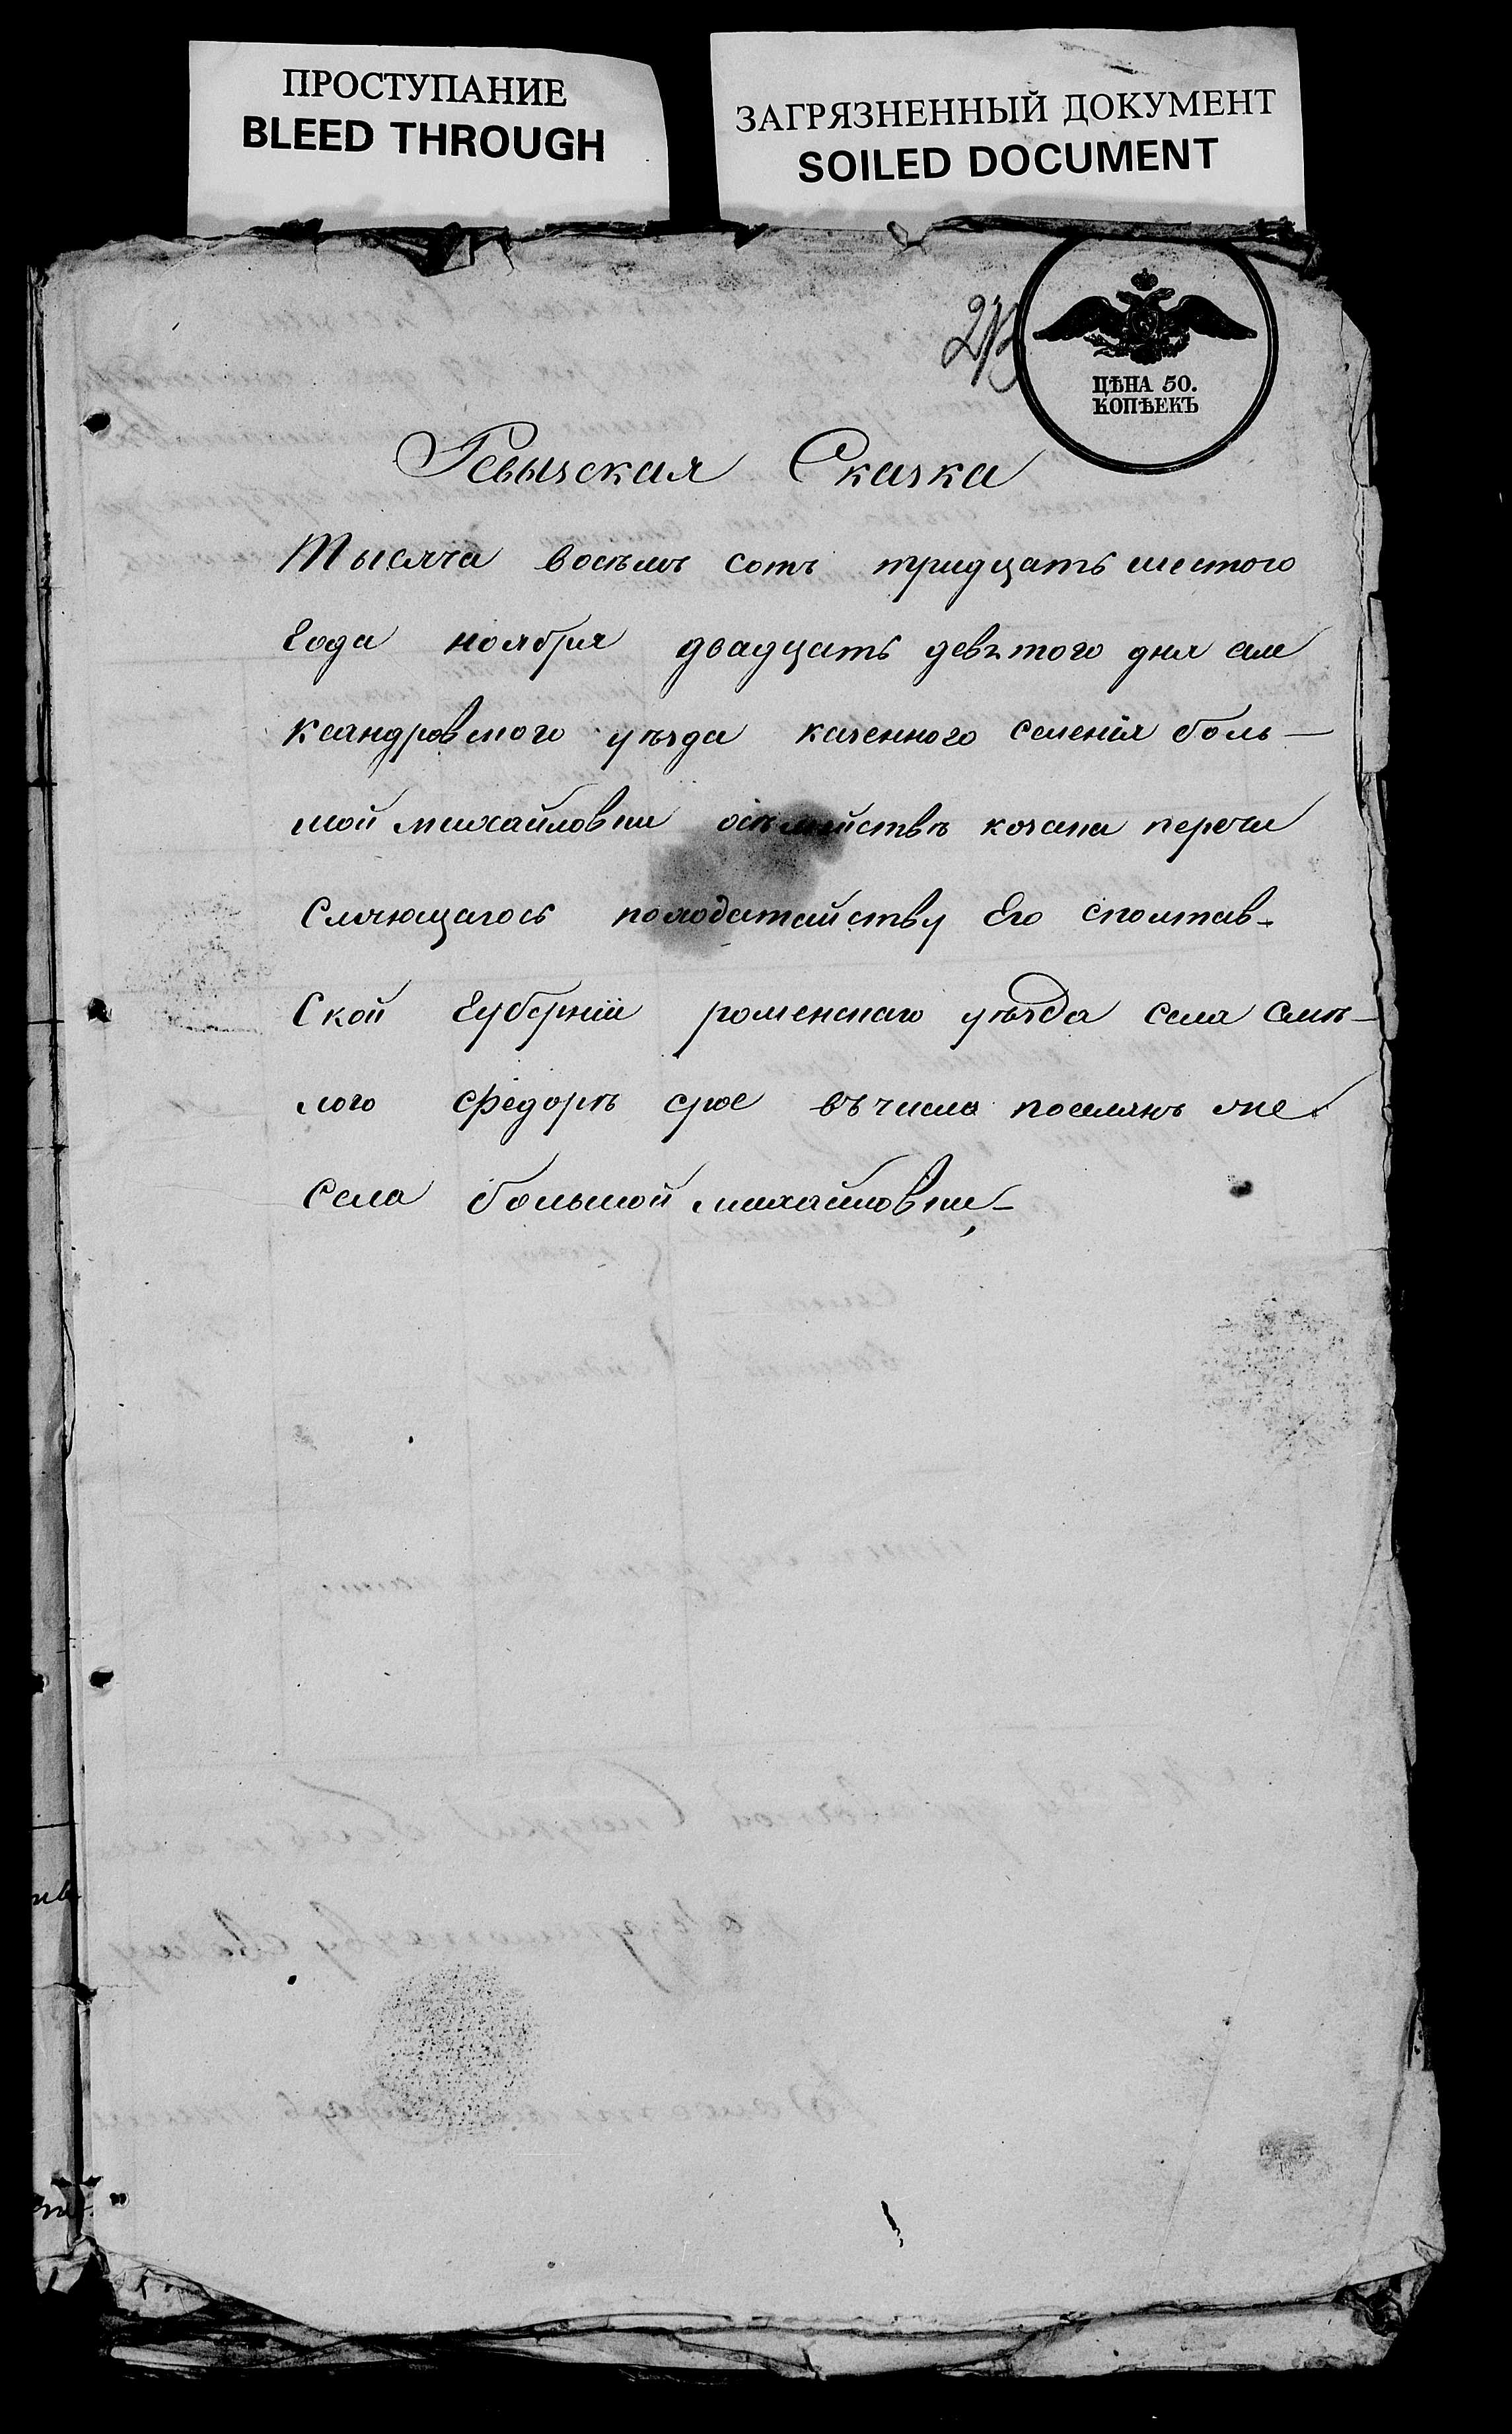 ПРОСТУПАНИЕ
BLEED THROUGH
ЗАГРЯЗНЕННЫЙ ДОКУМЕНТ
SOILED DOCUMENT
ЦѢНА 50.
КОПѢЕКЪ
Ревызская Сказка
Тысяча восѣмъ сотъ тридцать шестого
года ноября двадцать девятого дня але
ксандровского уѣзда казенного селенія боль-
шой михайловки осѣмѣйствѣ козака перечи
сляющагося походатайству Его сполтав-
ской губерніи роменскаго уѣзда села смѣ-
лого федорѣ въ числа поселянъ
села большой михайловки